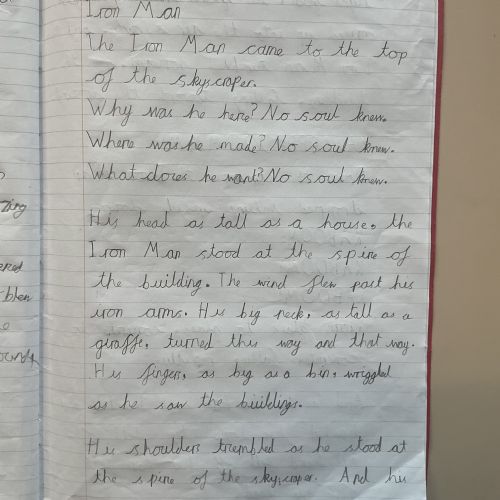 Iron Man
The Iron Man came to the top
of the skyscraper.
Why was he here? No soul knew.
Where was he made? No soul knew.
What does he want? No soul knew.
His head as tall as a house, the
Iron Man stood at the spine of
the building. The wind flew past his
iron arms. His big neck, as tall as a
giraffe, turned this way and that way.
His fingers, as big as a bin, wriggled
as he saw the buildings.
His shoulders trembled as he stood at
the spine of the skyscraper. And his